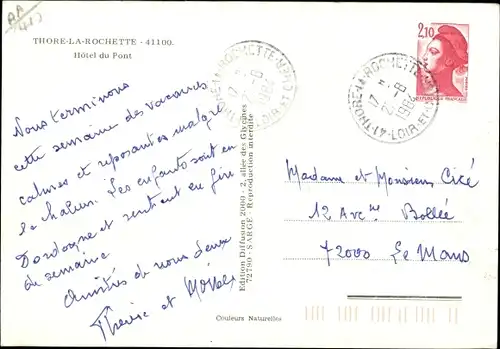 THORE-LA-ROCHETTE - 41100.
Hôtel du Pont
Nous terminons
cette semaine des vacances
calmes et reposantes malgré
la chaleur. Les enfants sont en
Dordogne et rentrent en fin
de semaine
Amitiés de nous deux
Thérèse et
Edition Diffusion 2000 - 2, allée des
72190 - SARGÉ - Reproduction interdite
Couleurs Naturelles
THORE-LA-ROCHETTE
17 H
1984
41-LOIR-ET-CHER
2,10
REPUBLIQUE FRANÇAISE
Madame et Monsieur
12 Ave Bollée
72000 Le Mans